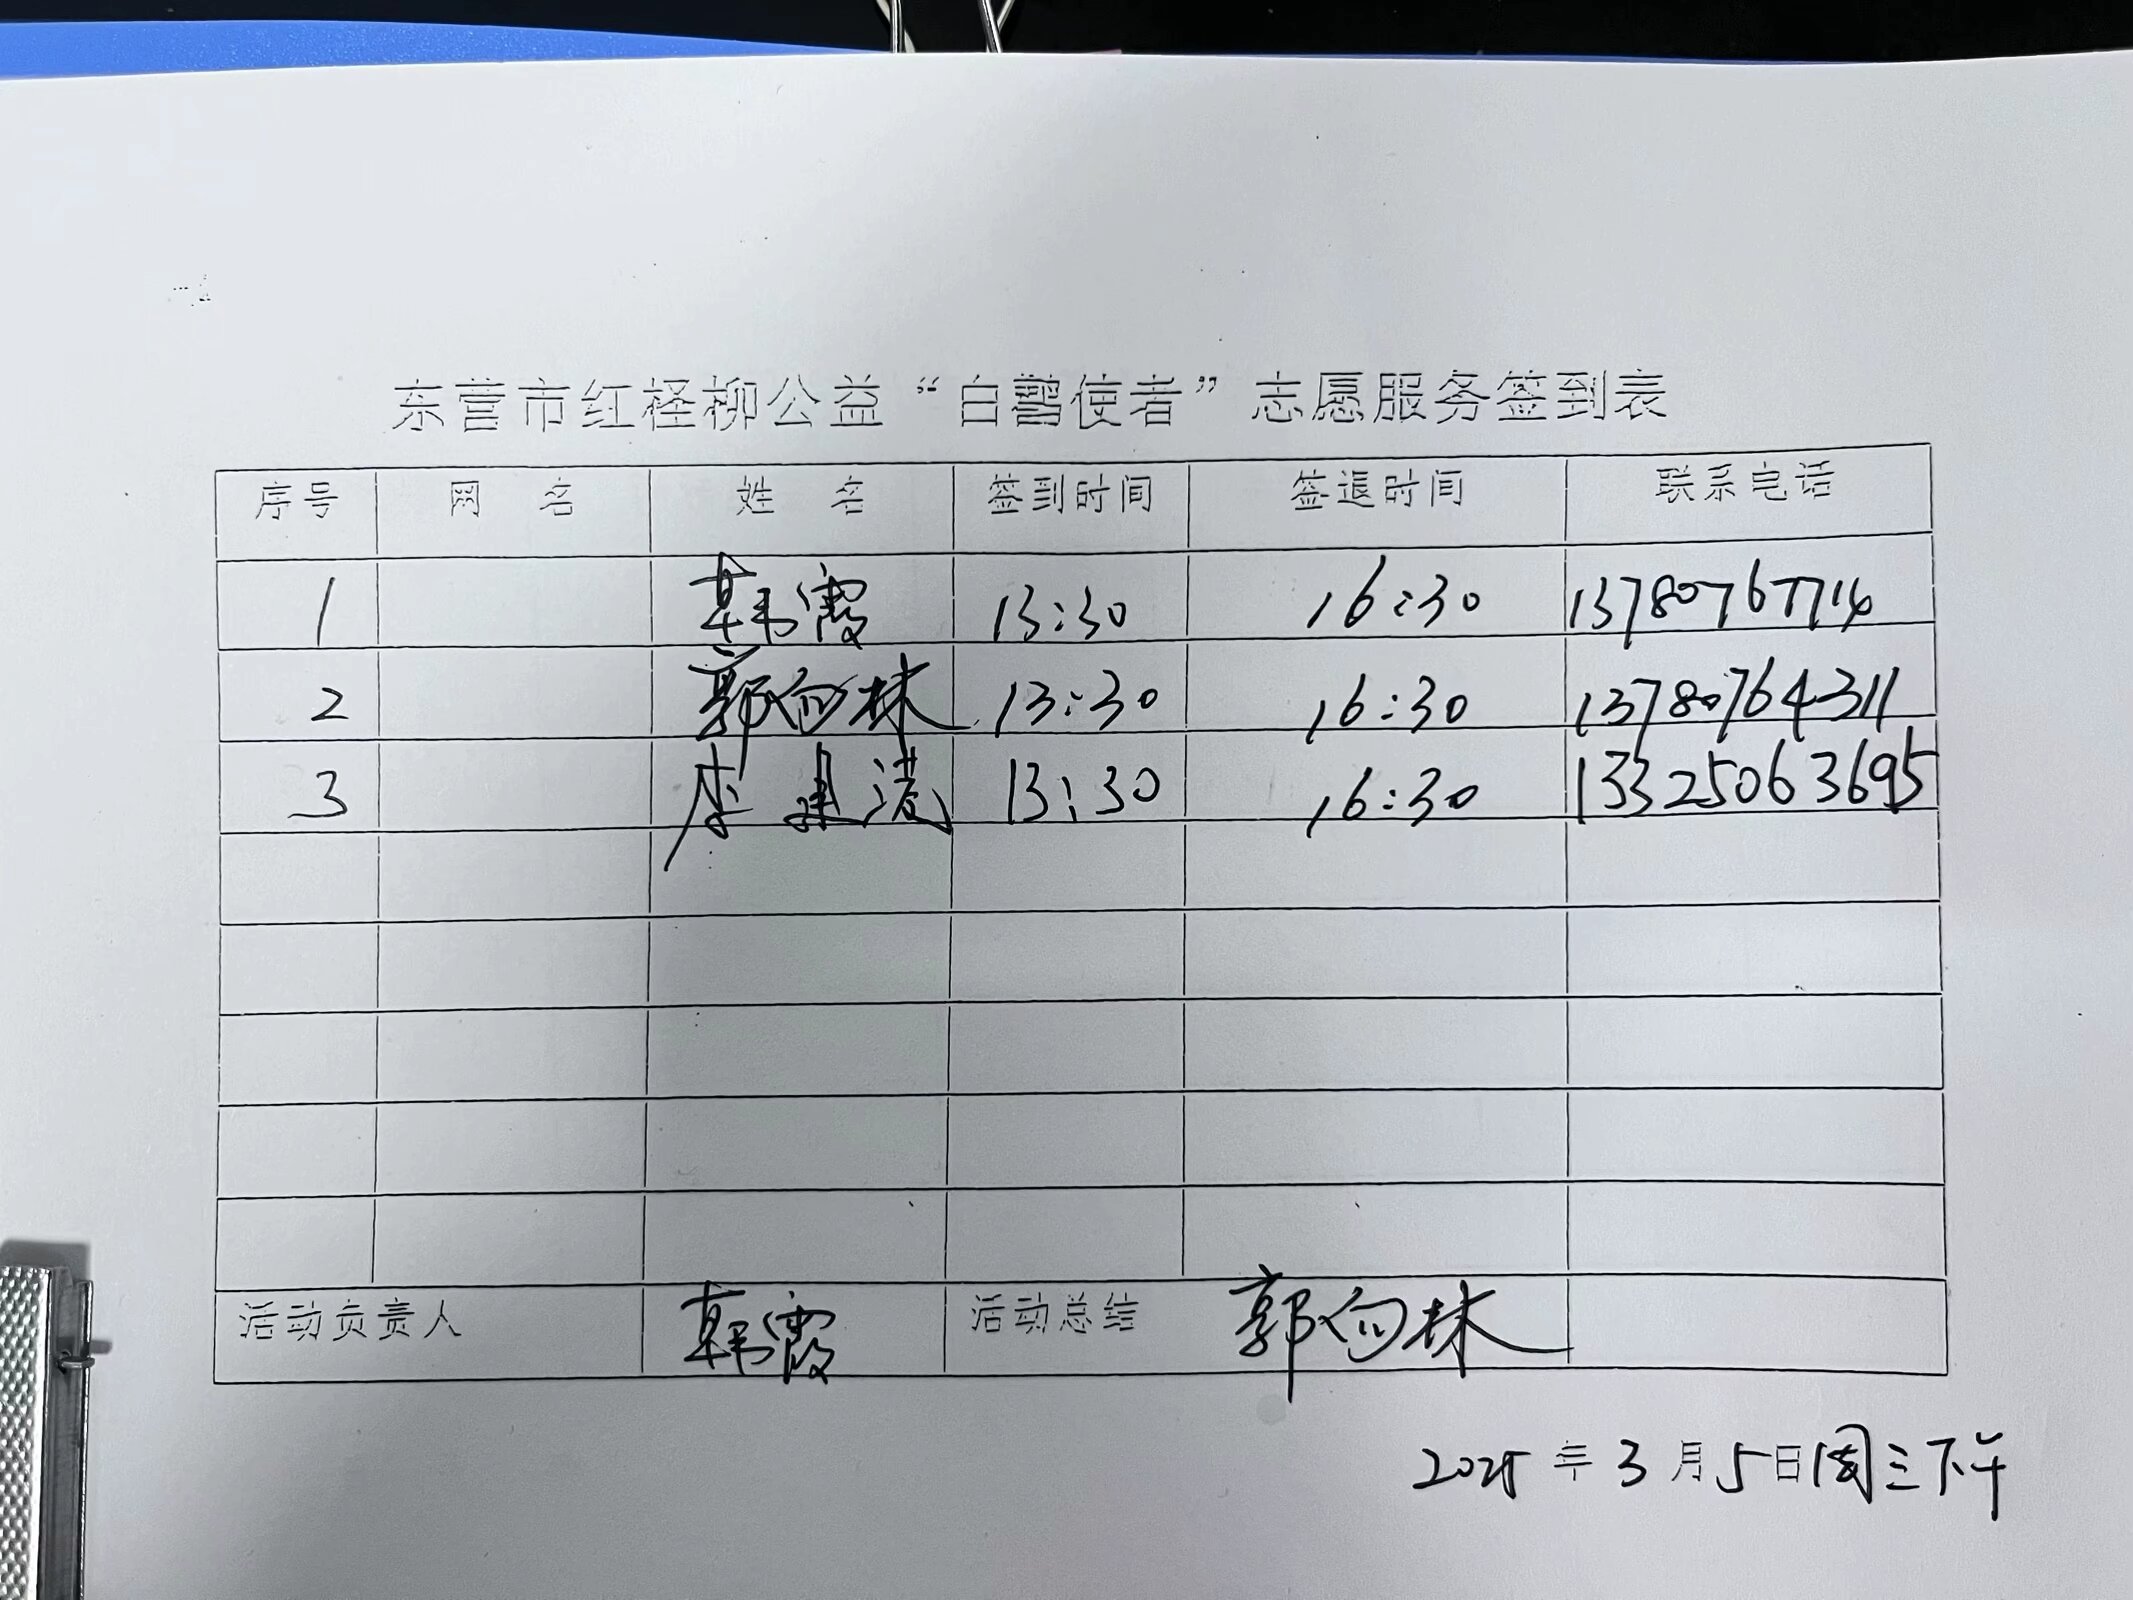 东营市红柽柳公益“白鹳使者”志愿服务签到表
序号 网 名 姓 名 签到时间 签退时间 联系电话
1 韩霞 13:30 16:30 13780767714
2 郭向林 13:30 16:30 13780764311
3 李建 13:30 16:30 13325063695
活动负责人 韩霞 活动总结 郭向林
2025年3月5日周三下午